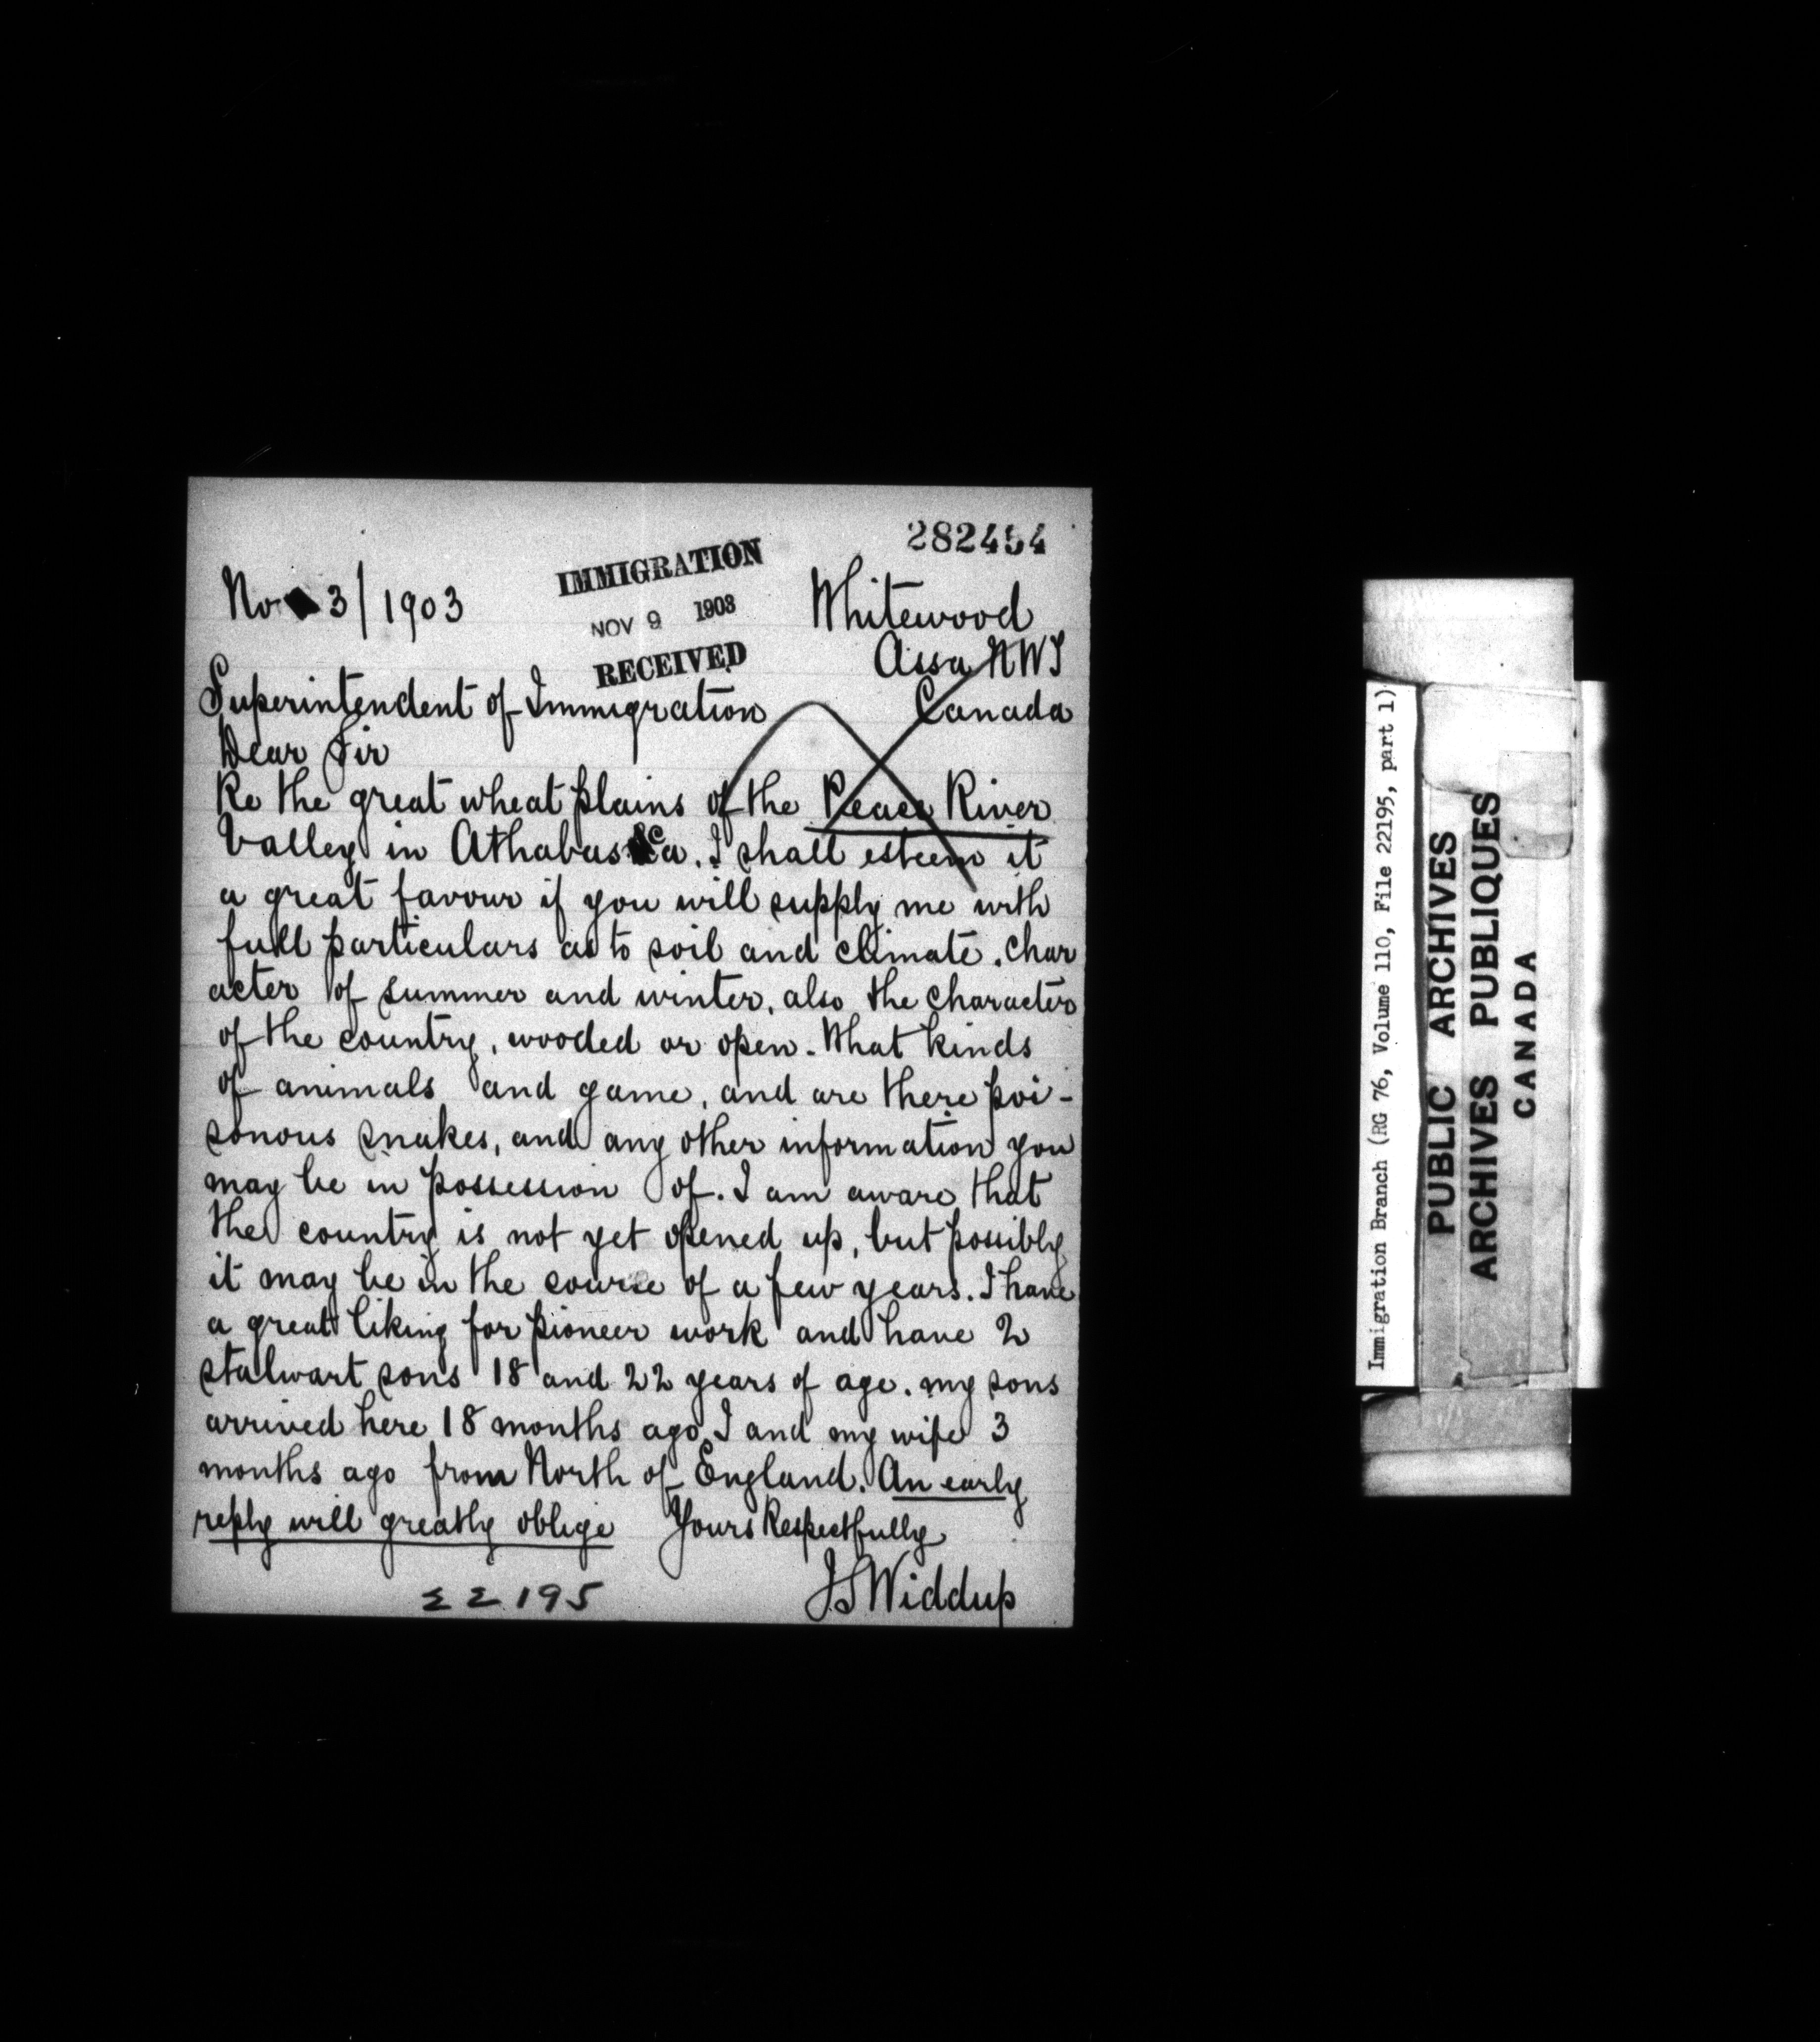 282454
IMMIGRATION
NOV 9 1903
RECEIVED
Nov 3/1903
Whitewood
Assa NWT
Canada
Superintendent of Immigration
Dear Sir
Re the great wheat plains of the Peace River
Valley in Athabasca. I shall esteem it
a great favour if you will supply me with
full particulars as to soil and climate. Char
acter of summer and winter, also the character
of the country, wooded or open. What kinds
of animals and game, and are there poi-
sonous snakes, and any other information you
may be in possession of. I am aware that
the country is not yet opened up, but possibly
it may be in the course of a few years. I have
a great liking for pioneer work and have 2
stalwart sons 18 and 22 years of age. my sons
arrived here 18 months ago I and my wife 3
months ago from North of England. An early
reply will greatly oblige Yours Respectfully
JS Widdup
22195
Immigration Branch (RG 76, Volume 110, File 22195, part 1)
PUBLIC ARCHIVES
ARCHIVES PUBLIQUES
CANADA